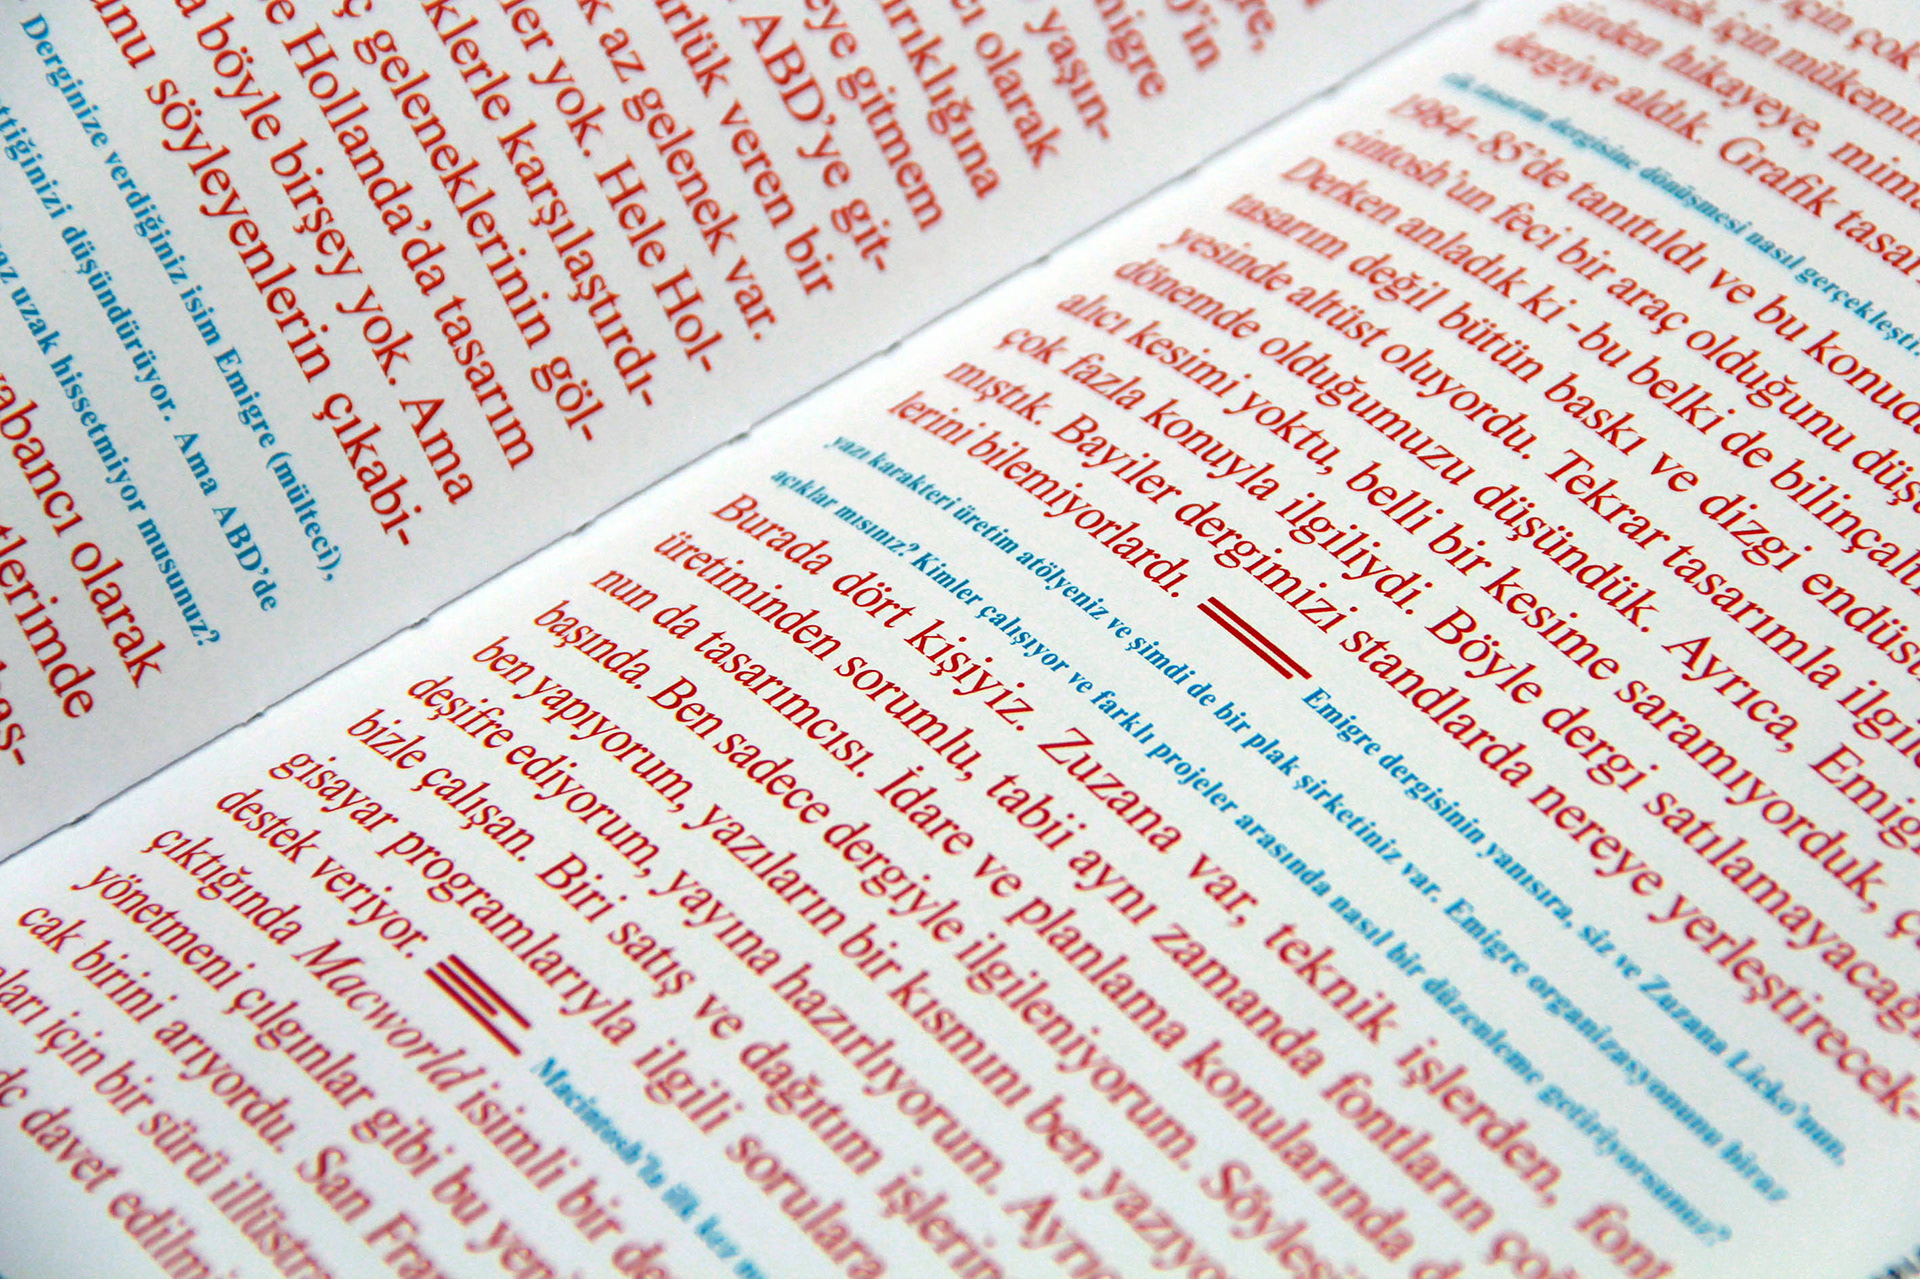 migre
yaşın-
olarak
ırıklığına
eye gitmem
ABD'ye git-
rlük veren bir
k az gelenek var.
ler yok. Hele Hol-
klerle karşılaştırdı-
ç geleneklerinin göl-
e Hollanda'da tasarım
a böyle birşey yok. Ama
unu söyleyenlerin çıkabi-
Derginize verdiğiniz isim Emigre (mülteci),
ttiğinizi düşündürüyor. Ama ABD'de
raz uzak hissetmiyor musunuz?
yabancı olarak
tlerimde
için çok
için mükemm
şinden hikayeye, mima
dergiye aldık. Grafik tasar
tasarım dergisine dönüşmesi nasıl gerçekleşti?
1984-85'de tanıtıldı ve bu konuda
cintosh'un feci bir araç olduğunu düşü
Derken anladık ki -bu belki de bilinçaltı
tasarım değil bütün baskı ve dizgi endüst
yesinde altüst oluyordu. Tekrar tasarımla ilgile
dönemde olduğumuzu düşündük. Ayrıca, Emigr
alıcı kesimi yoktu, belli bir kesime saramıyorduk, ç
çok fazla konuyla ilgiliydi. Böyle dergi satılamayacağ
mıştık. Bayiler dergimizi standlarda nereye yerleştirecek-
lerini bilemiyorlardı. Emigre dergisinin yanısıra, siz ve Zuzana Licko'nun,
yazı karakteri üretim atölyeniz ve şimdi de bir plak şirketiniz var. Emigre organizasyonunu biraz
açıklar mısınız? Kimler çalışıyor ve farklı projeler arasında nasıl bir düzenleme getiriyorsunuz?
Burada dört kişiyiz. Zuzana var, teknik işlerden, font
üretiminden sorumlu, tabii aynı zamanda fontların ço
nun da tasarımcısı. İdare ve planlama konularında d
başında. Ben sadece dergiyle ilgileniyorum. Söyleşi
ben yapıyorum, yazıların bir kısmını ben yazıyo
deşifre ediyorum, yayına hazırlıyorum. Ayrı
bizle çalışan. Biri satış ve dağıtım işlerin
gisayar programlarıyla ilgili sorulara
destek veriyor. Macintosh'la ilk kez
çıktığında Macworld isimli bir de
yönetmeni çılgınlar gibi bu yeni
cak birini arıyordu. San Fra
ları için bir sürü illüstra
davet edilmi